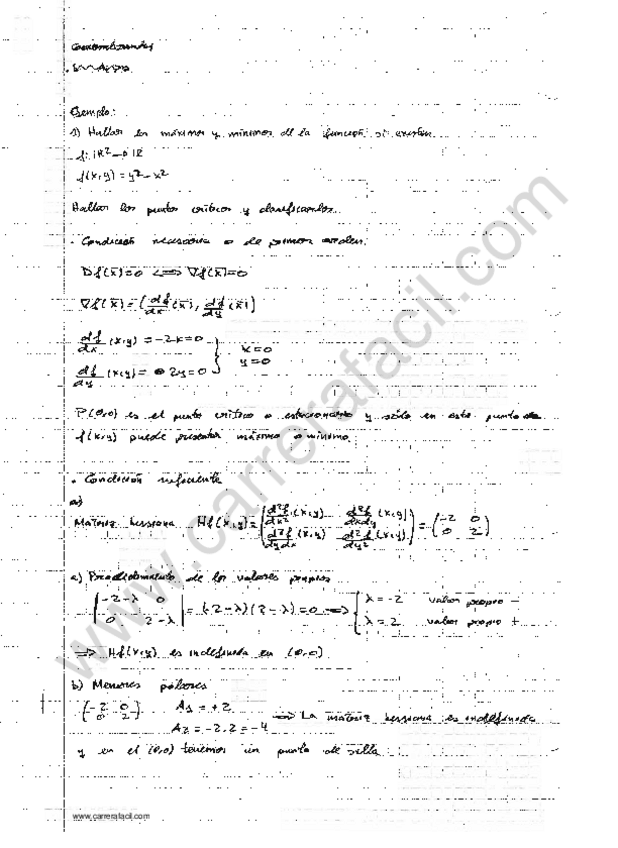 Ejemplo:
1) Hallar los máximos y mínimos de la función si existen
f: IR² → IR
f(x,y) = y² - x²
Hallar los puntos críticos y clasificarlos.
· Condición necesaria o de primer orden:
Df(x̄)=0 <=> ∇f(x̄)=0
∇f(x̄) = (df/dx (x̄), df/dy (x̄))
df/dx (x,y) = -2x=0 } x=0
df/dy (x,y) = 2y=0 } y=0
P(0,0) es el punto crítico o estacionario y sólo en este punto
f(x,y) puede presentar máximo o mínimo.
· Condición suficiente
a)
Matriz hessiana Hf(x,y) = (d²f/dx² (x,y) d²f/dxdy (x,y) ; d²f/dydx (x,y) d²f/dy² (x,y)) = (-2 0 ; 0 2)
a) Procedimiento de los valores propios
|-2-λ 0 ; 0 2-λ| = (-2-λ)(2-λ)=0 => { λ=-2 valor propio -
λ=2 valor propio +
=> Hf(x,y) es indefinida en (0,0)
b) Menores
(-2 0 ; 0 2) A₁ = +2
A₂ = -2·2 = -4 => La matriz hessiana es indefinida
y en el (0,0) tenemos un punto de silla
www.carrerafacil.com
www.carrerafacil.com